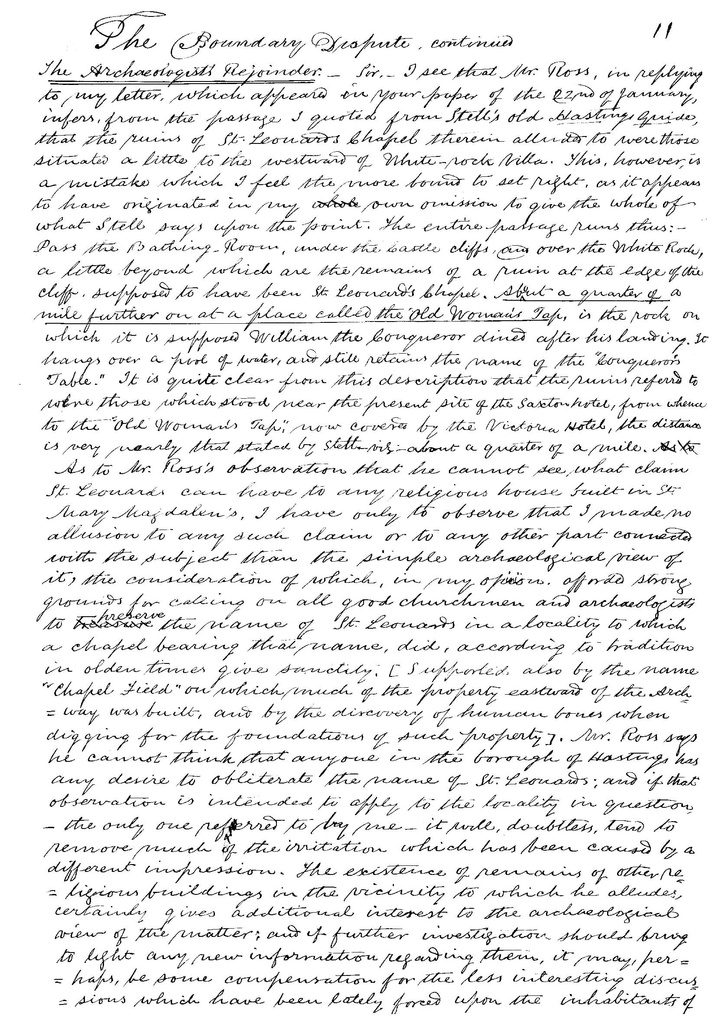 11
The Boundary Dispute, continued
The Archaeologist's Rejoinder. — Sir, — I see that Mr. Ross, in replying
to my letter, which appeared in your paper of the 22nd of January,
infers, from the passage I quoted from Stell's old Hastings Guide,
that the ruins of St. Leonards Chapel therein alluded to were those
situated a little to the westward of White-rock Villa. This, however, is
a mistake which I feel the more bound to set right, as it appears
to have originated in my whole own omission to give the whole of
what Stell says upon the point. The entire passage runs thus:—
Pass the Bathing-Room, under the Castle cliffs, and over the White Rock,
a little beyond which are the remains of a ruin at the edge of the
cliff, supposed to have been St. Leonard's Chapel. About a quarter of a
mile further on at a place called the "Old Woman's Tap, is the rock on
which it is supposed William the Conqueror dined after his landing. It
hangs over a pool of water, and still retains the name of the "Conqueror's
Table." It is quite clear from this description that the ruins referred to
were those which stood near the present site of the Saxton Hotel, from whence
to the "Old Woman's Tap", now covered by the Victoria Hotel, the distance
is very nearly that stated by Stell—viz—about a quarter of a mile. As to
As to Mr. Ross's observation that he cannot see what claim
St. Leonards can have to any religious house built in St.
Mary Magdalen's, I have only to observe that I made no
allusion to any such claim or to any other part connected
with the subject than the simple archaeological view of
it, the consideration of which, in my opinion, affords strong
grounds for calling on all good churchmen and archaeologists
to preserve the name of St. Leonards in a locality to which
a chapel bearing that name, did, according to tradition
in olden times give sanctity. [Supported also by the name
"Chapel Field" on which much of the property eastward of the Arch-
=way was built, and by the discovery of human bones when
digging for the foundations of such property]. Mr. Ross says
he cannot think that anyone in the borough of Hastings has
any desire to obliterate the name of St. Leonards; and if that
observation is intended to apply to the locality in question
— the only one referred to by me — it will, doubtless, tend to
remove much of the irritation which has been caused by a
different impression. The existence of remains of other re=
=ligious buildings in the vicinity to which he alludes,
certainly gives additional interest to the archaeological
view of the matter; and if further investigation should bring
to light any new information regarding them, it may, per=
=haps, be some compensation for the less interesting discus
=sions which have been lately forced upon the inhabitants of